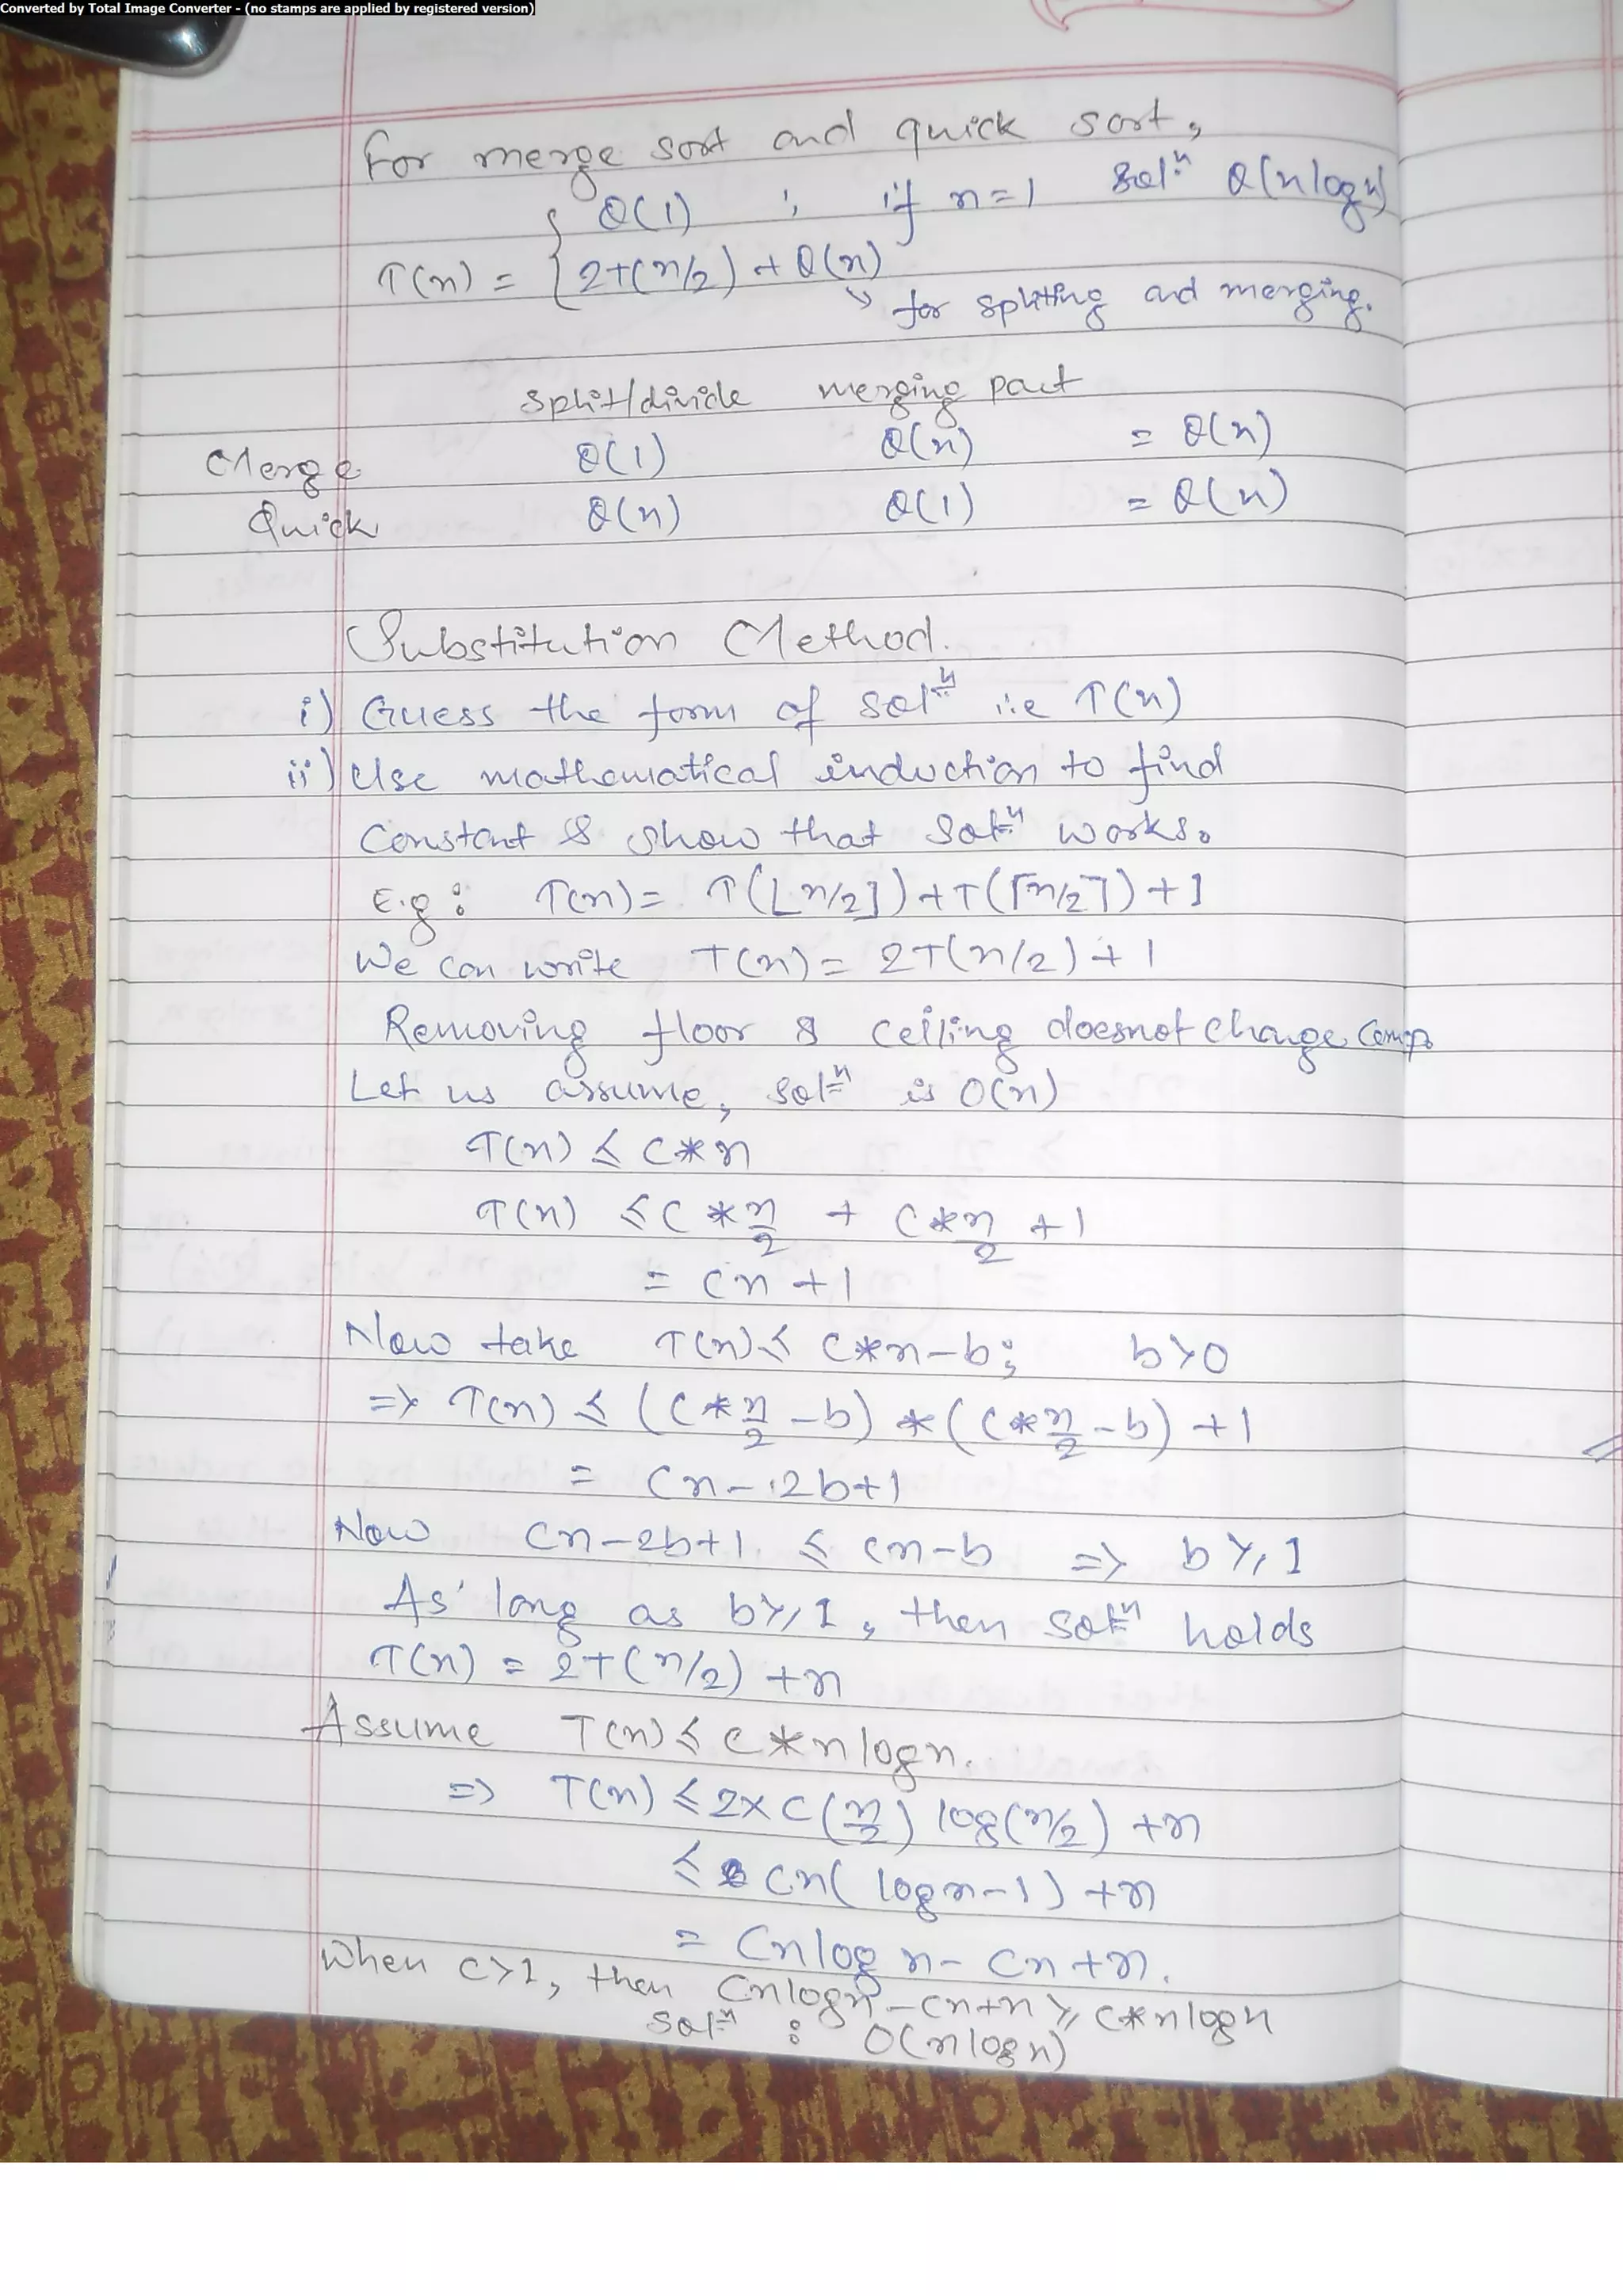 Converted by Total Image Converter - (no stamps are applied by registered version)
For merge sort and quick sort,
θ(1) ; if n=1 solⁿ θ(nlogn)
T(n) = { 2T(n/2) + θ(n)
↳ for splitting and merging.
split/divide merging part
Merge θ(1) θ(n) = θ(n)
Quick θ(n) θ(1) = θ(n)
Substitution Method.
i) Guess the form of solⁿ i.e T(n)
ii) Use mathematical induction to find
constant & show that solⁿ works.
E.g : T(n) = T(⌊n/2⌋) + T(⌈n/2⌉) + 1
We can write T(n) = 2T(n/2) + 1
Removing floor & ceiling doesnot change comp.
Let us assume, solⁿ is O(n)
T(n) ≤ c*n
T(n) ≤ c*n/2 + c*n/2 + 1
= cn + 1
Now take T(n) ≤ c*n-b; b>0
=> T(n) ≤ (c*n/2 - b) * (c*n/2 - b) + 1
= cn - 2b+1
Now cn-2b+1 ≤ cn-b => b≥1
As long as b≥1, then solⁿ holds
T(n) = 2T(n/2) + n
Assume T(n) ≤ c*nlogn.
=> T(n) ≤ 2×c(n/2) log(n/2) + n
≤ cn(logn-1) + n
= cnlogn - cn + n.
When c>1, then cnlogn - cn+n ≥ c*nlogn
solⁿ : O(nlogn)